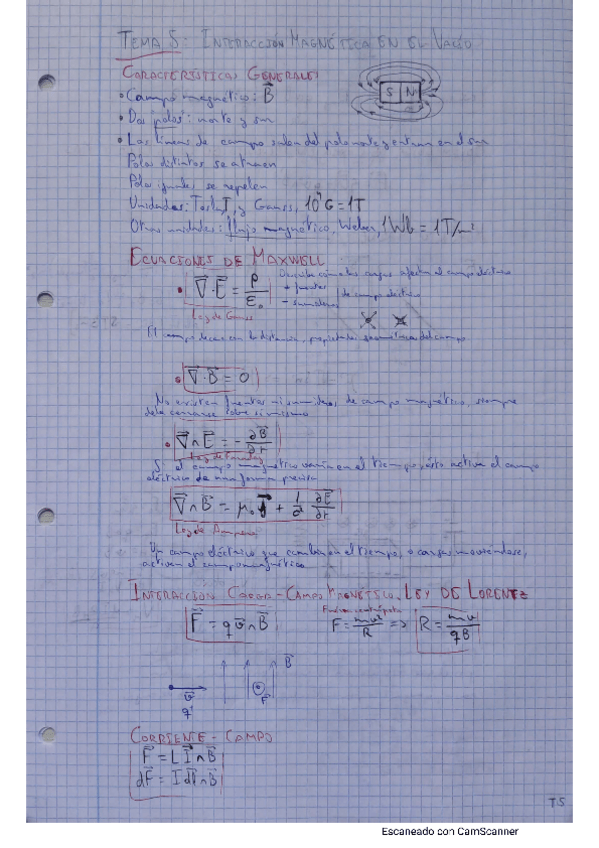 TEMA 5: INTERACCIÓN MAGNÉTICA EN EL VACÍO
CARACTERÍSTICAS GENERALES
• Campo magnético: B⃗
S N
• Dos polos: norte y sur
• Las líneas de campo salen del polo norte y entran en el sur
Polos distintos se atraen
Polos iguales se repelen
Unidades: Tesla, T, y Gauss, 10⁴ G = 1T
Otras unidades: flujo magnético, Weber, 1Wb = 1T/m²
ECUACIONES DE MAXWELL
• ∇⃗·E⃗ = ρ/ε₀
Describe cómo las cargas afectan el campo eléctrico
+ fuentes
- sumideros
de campo eléctrico
Ley de Gauss
El campo decae con la distancia, propiedades geométricas del campo
• ∇⃗·B⃗ = 0
No existen fuentes ni sumideros de campo magnético, siempre
debe cerrarse sobre sí mismo
• ∇⃗∧E⃗ = - ∂B⃗/∂t
Ley de Faraday
Si el campo magnético varía en el tiempo, esto activa el campo
eléctrico de una forma precisa
∇⃗∧B⃗ = μ₀ J⃗ + 1/c² ∂E⃗/∂t
Ley de Ampere
Un campo eléctrico que cambia en el tiempo, o cargas moviendose,
activan el campo magnético
INTERACCIÓN CARGA-CAMPO MAGNÉTICO, LEY DE LORENTZ
Fuerza centrípeta
F⃗ = qv⃗∧B⃗
F = mv²/R => R = mv/qB
B⃗
v⃗
F⃗
q
CORRIENTE - CAMPO
F⃗ = L I⃗ ∧ B⃗
dF⃗ = I dl⃗ ∧ B⃗
T5
Escaneado con CamScanner